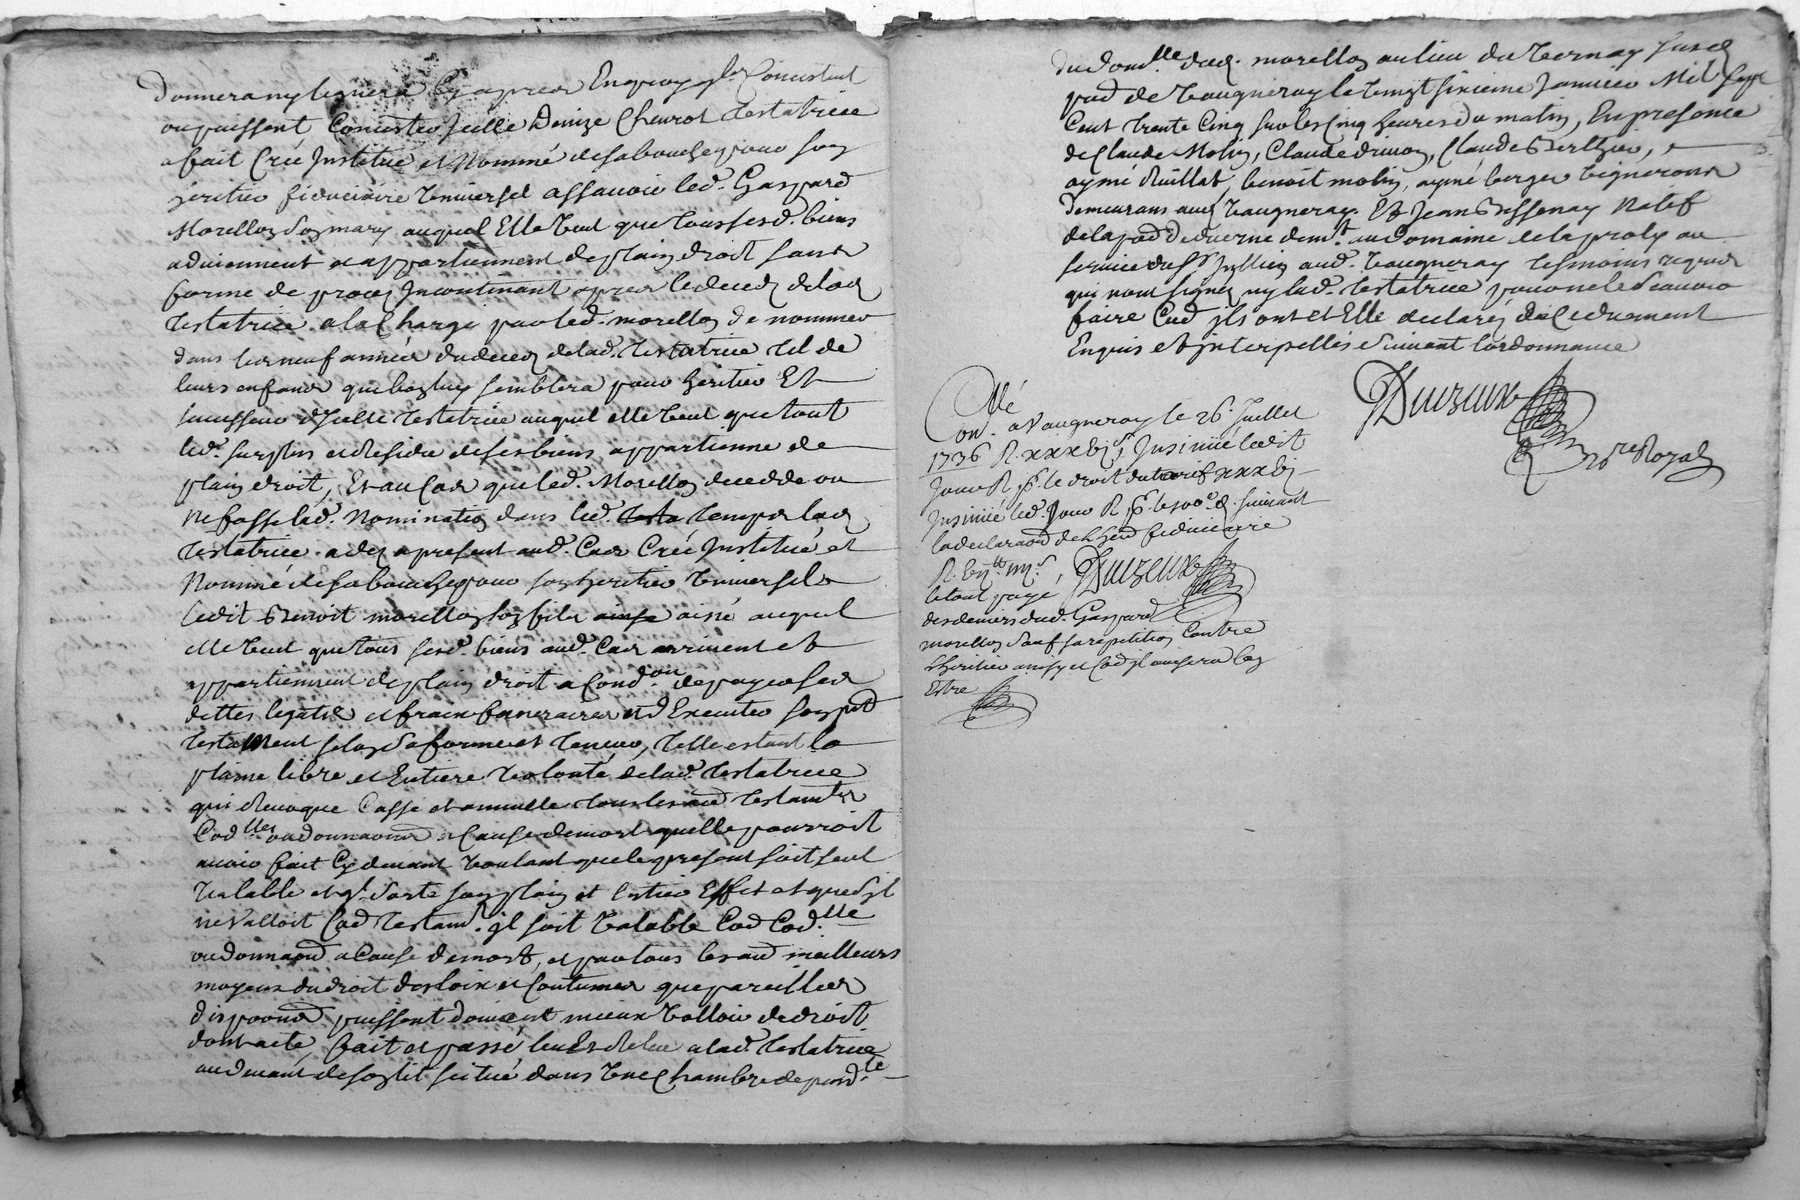 donnera ny leguera Cy apres En quoy ils Concistent
ou puissent Concister Jcelle Denize Chevrot testatrice
a fait Créé Jnstitué et Nommé de sa bouche pour son
heritier fiduciaire Vniversel assauoir led. Gaspard
Morellon son mary auquel Elle Veut que tous sesd. biens
aduiennent et appartiennent de plain droit sans
forme de proces Jncontinant apres le deced de lad
testatrice a la Charge par led. morellon de nommer
dans les neuf années du deced de lad. testatrice tel de
leurs enfans que bon luy semblera pour heritier Et
successeur d'Jcelle testatrice auquel elle Veut que tout
led. surplus et Residu de ses biens appartienne de
plain droit, Et au Cas que led. Morellon decedde ou
ne fasse lad. Nomination dans led. temps lad
testatrice a dez a present aud. Cas Créé Jnstitué et
Nommé de sa bouche pour son heritier Vniversel
ledit Benoit morellon son fils aisné auquel
elle Veut que tous sesd. biens aud. Cas arrivent et
appartiennent de plain droit a Condon de payer ses
dettes legats et fraix funeraires et d'Executer son pnt
testament selon sa forme et teneur, telle estant la
plaine libre et Entiere Volonté de lad. testatrice
qui Revoque Casse et annulle tous les aud testamts
Codlles ou donnaons a Cause de mort quelle pourroit
auoir fait Cy deuant Voulant que le present soit seul
Valable et qt sorte son plain et Entier Effet et que s'il
ne Valloit Cod testamt. jl soit Valable Cod Codlle
ou donnaon a Cause de mort, et par tous les aud meilleurs
moyens du droit des loix et Coutumes que pareilles
dispoons puissent doivent mieux Valloir de droit
dont acte, fait et passé leu Et Releu a lad. testatrice
au deuant de son lit scitué dans Vne Chambre dependte
du domlle dud. morellon au lieu du Vernay susd
pad de Vaugneray le Vingt sixieme Janvier Mil sept
Cent trente Cinq sur les Cinq heures du matin, En presence
de Claude Molin, Claude dumon, Claude Berthier,
aymé Ruillat, benoit molin, aymé berger Vignerons
demeurans aud Vaugneray. Et Jean Bissenay Natif
de la pad d'Duerne demt. au domaine de la proly au
service du sr Jullien aud. Vaugneray tesmoins requis
qui n'ont signé ny lad. testatrice pour ne le sçauoir
faire Cod jls ont et Elle declaré de Ce duement
Enquis et jnterpellés suivant l'ordonnance
Duizeux
nre Royal
Collé
Con. a Vaugneray le 26 Juillet
1736 R xxxvj s Jnsinué ledit
Jour R le droit du tarif xxxvj
Jnsinué led. Jour R suivant
la declaraon de l'herr fiduciaire
le tout payé, Duizeux
des deniers dud. Gaspard
morellon sauf sa repetition Contre
l'heritier ainsy et Cod jl avisera bon
Estre